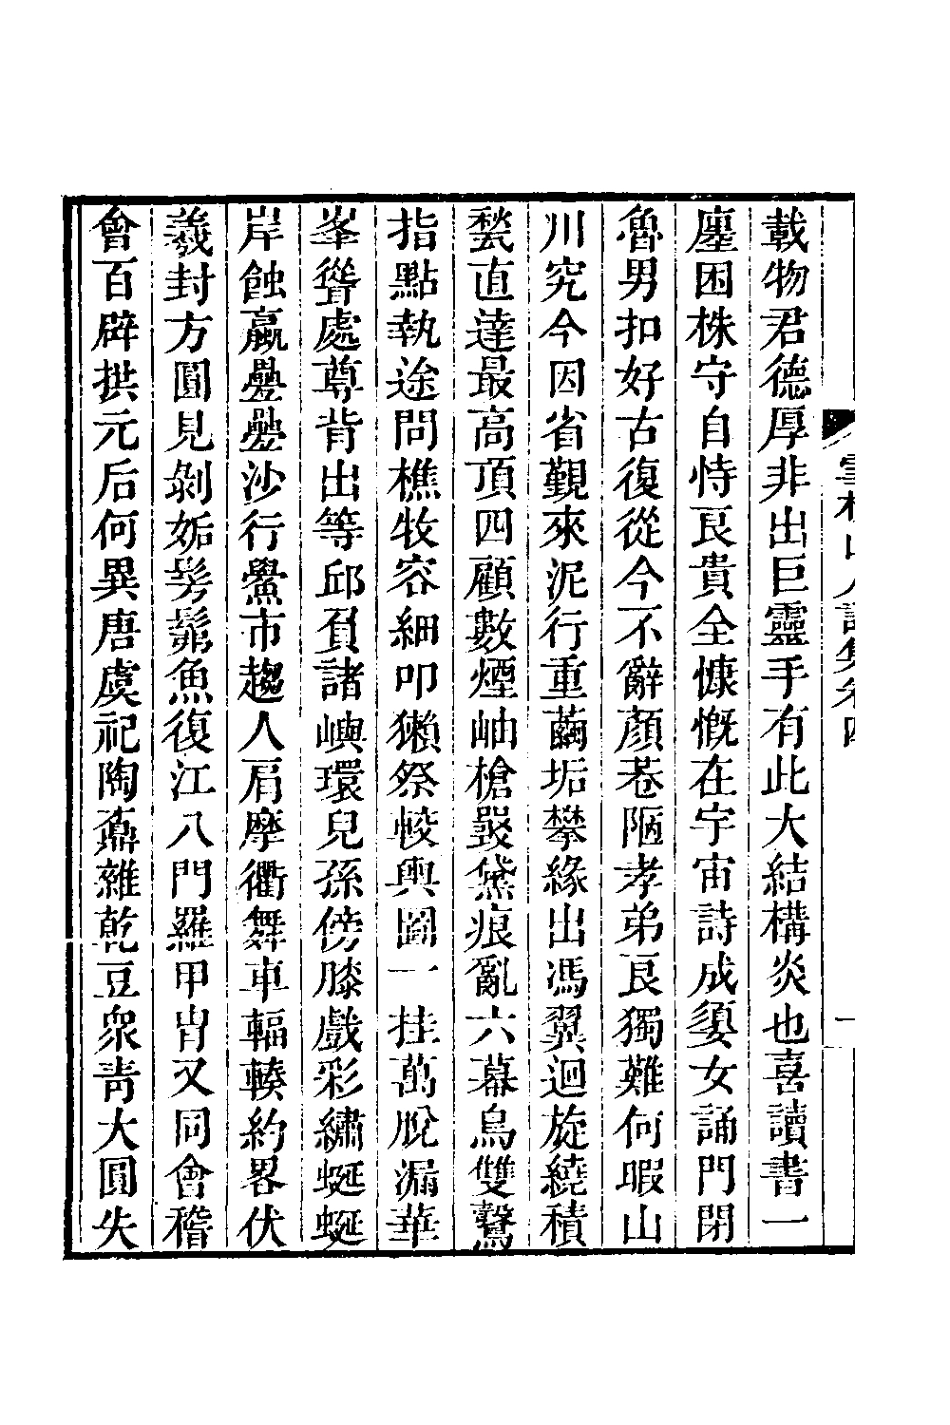 雲杉山人詩集卷四
一
載物君德厚非出巨靈手有此大結構炎也喜讀書一
廛困株守自恃艮貴全慷慨在宇宙詩成嬃女誦門閉
魯男扣好古復從今不辭顏巷陋孝弟艮獨難何暇山
川究今因省覲來泥行重繭垢攀緣出馮翼迴旋繞積
甃直達最高頂四顧數煙岫槍뾾黛痕亂六幕鳥雙鷖
指點執途問樵牧容細叩獺祭較輿圖一挂萬脫漏華
峯聳處尊背出等邱頁諸嶼環兒孫傍膝戲彩繡蜒蜒
岸蝕嬴疊疊沙行鱟市趨人肩摩衢舞車輻輳約畧伏
羲封方圓見剝姤髣髴魚復江八門羅甲冑又同會稽
會百辟拱元后何異唐虞祀陶鼒雜乾豆衆靑大圓失